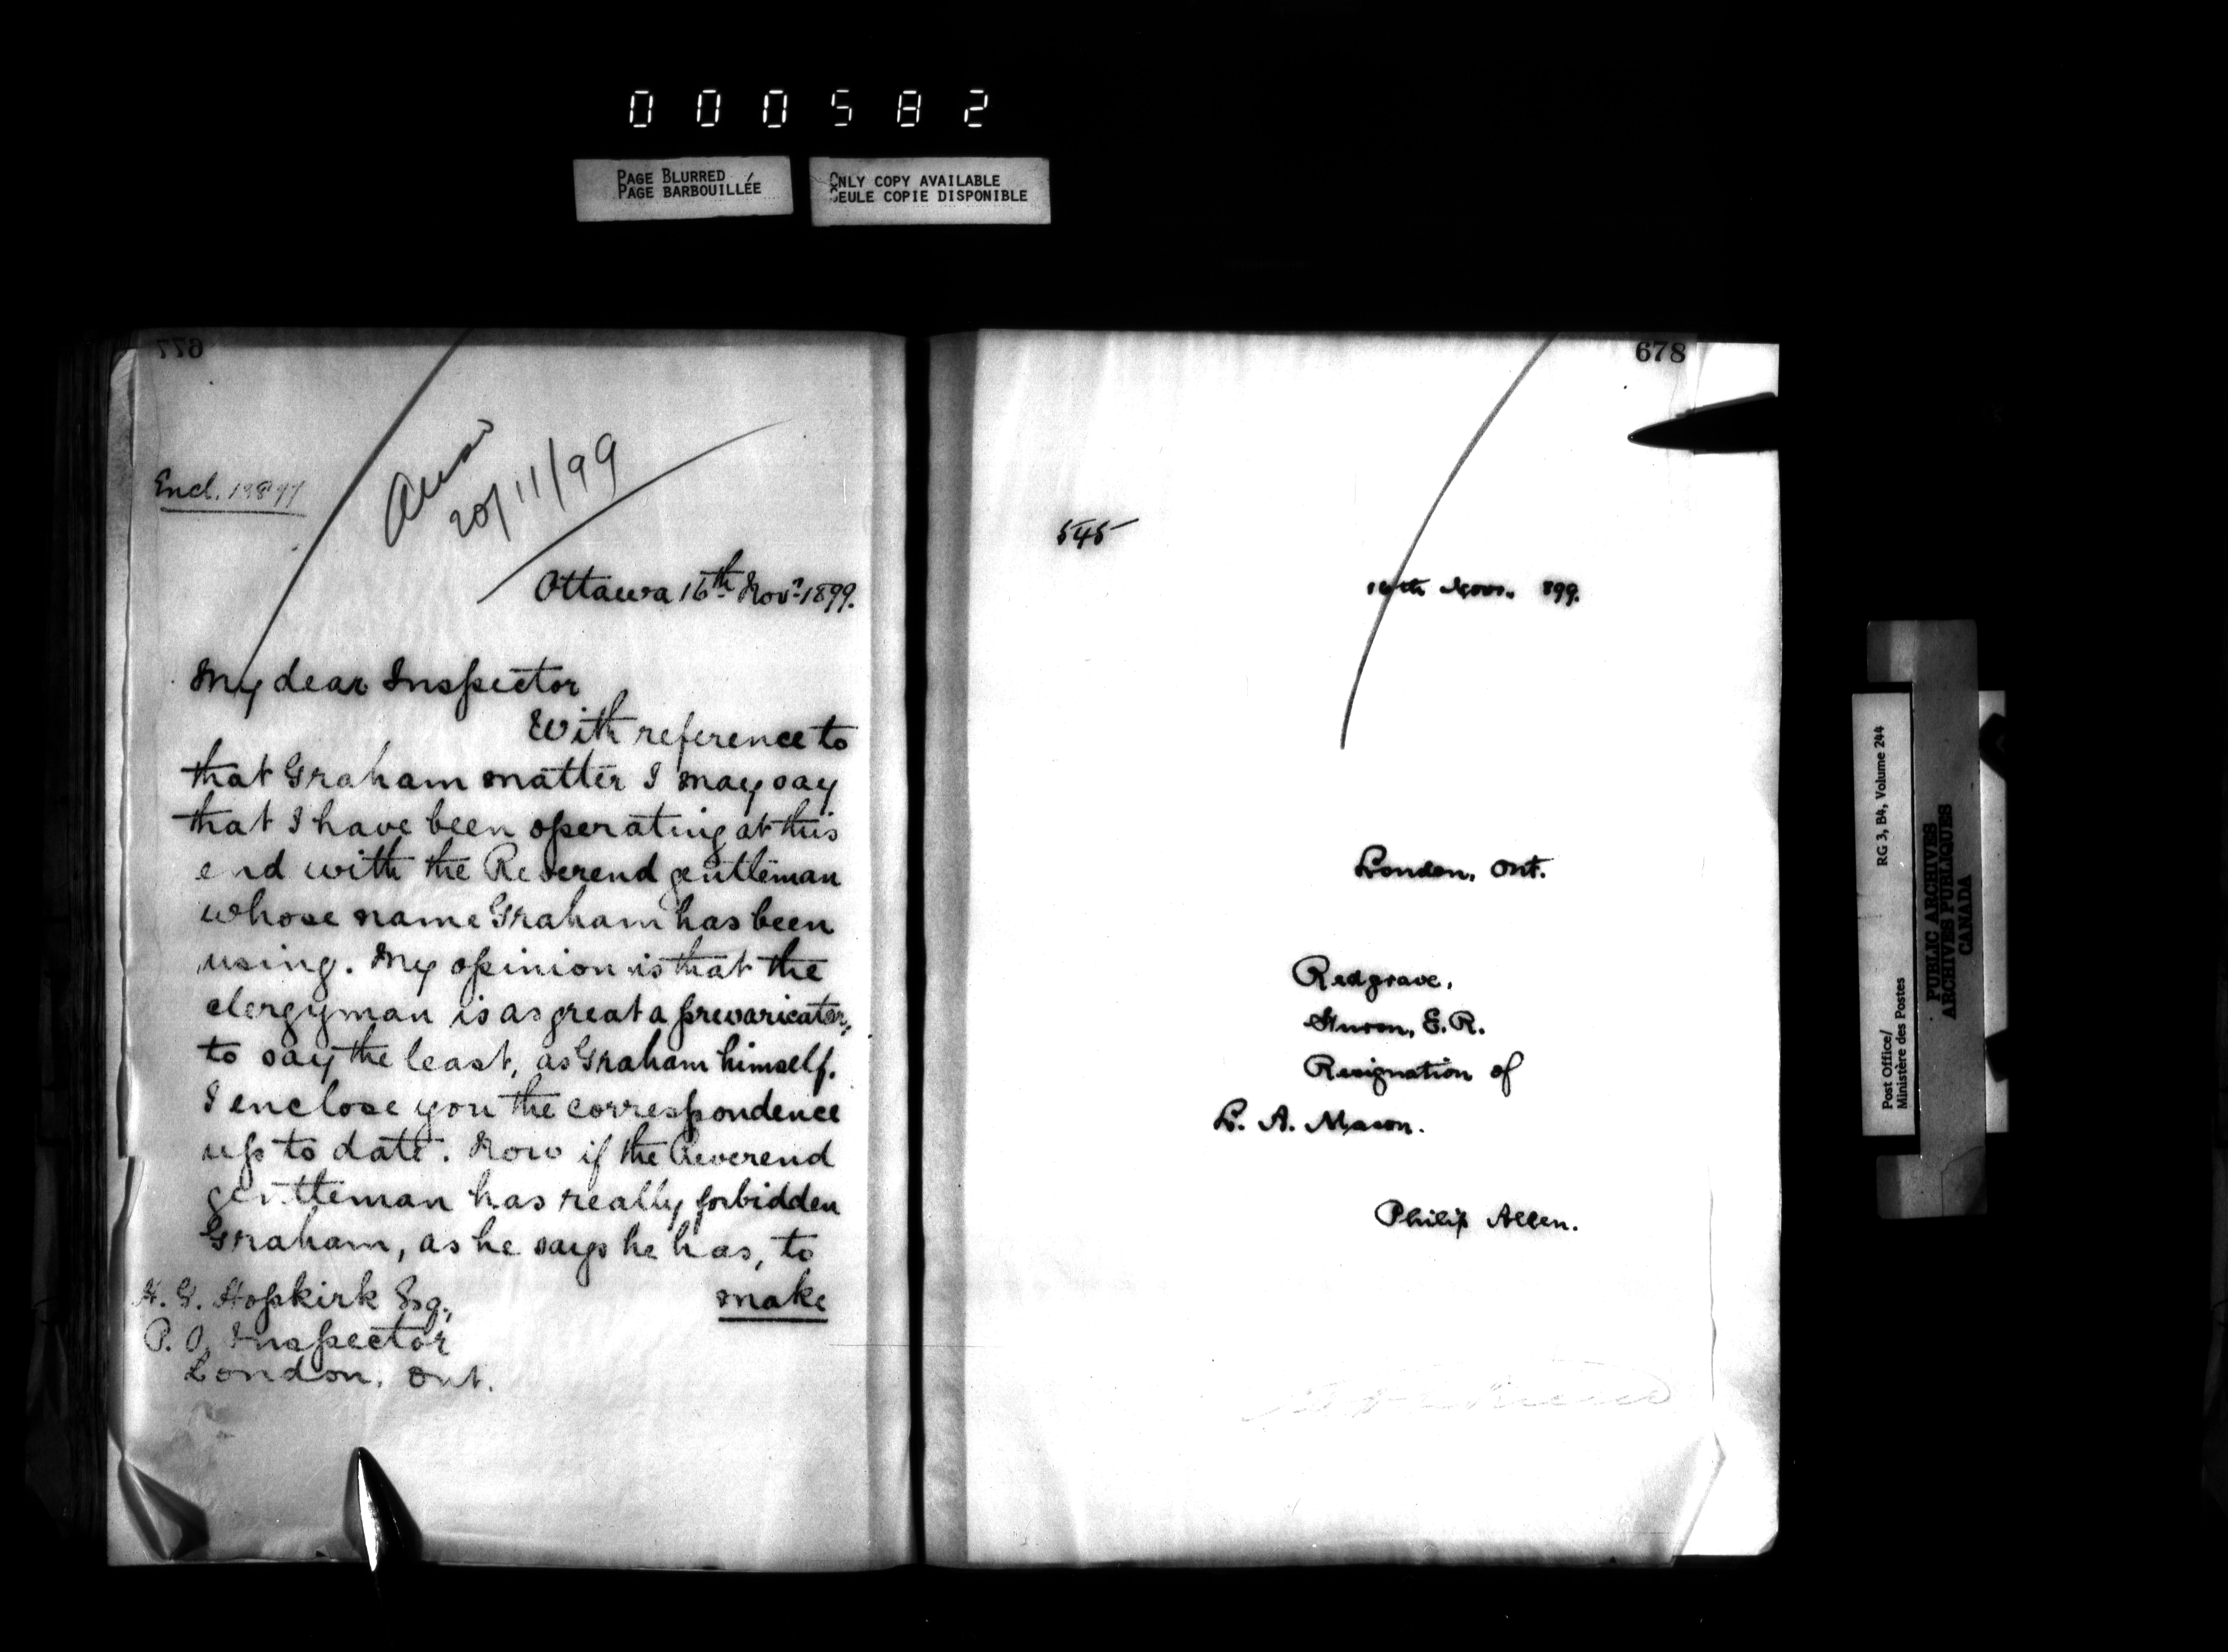 000582
PAGE BLURRED
PAGE BARBOUILLÉE
ONLY COPY AVAILABLE
SEULE COPIE DISPONIBLE
677
Encl.
Ans
20/11/99
Ottawa 16th Novr 1899.
My dear Inspector
With reference to
that Graham matter I may say
that I have been operating at this
end with the Reverend gentleman
whose name Graham has been
using. My opinion is that the
clergyman is as great a prevaricator,
to say the least, as Graham himself.
I enclose you the correspondence
up to date. Now if the Reverend
gentleman has really forbidden
Graham, as he says he has, to
make
H. G. Hopkirk Esq.,
P. O. Inspector
London, Ont.
678
545
16th Novr. 899.
London, Ont.
Redgrave,
Huron, E.R.
Resignation of
L. A. Mason.
Philip Allen.
Post Office/
Ministère des Postes
RG 3, B4, Volume 244
PUBLIC ARCHIVES
ARCHIVES PUBLIQUES
CANADA